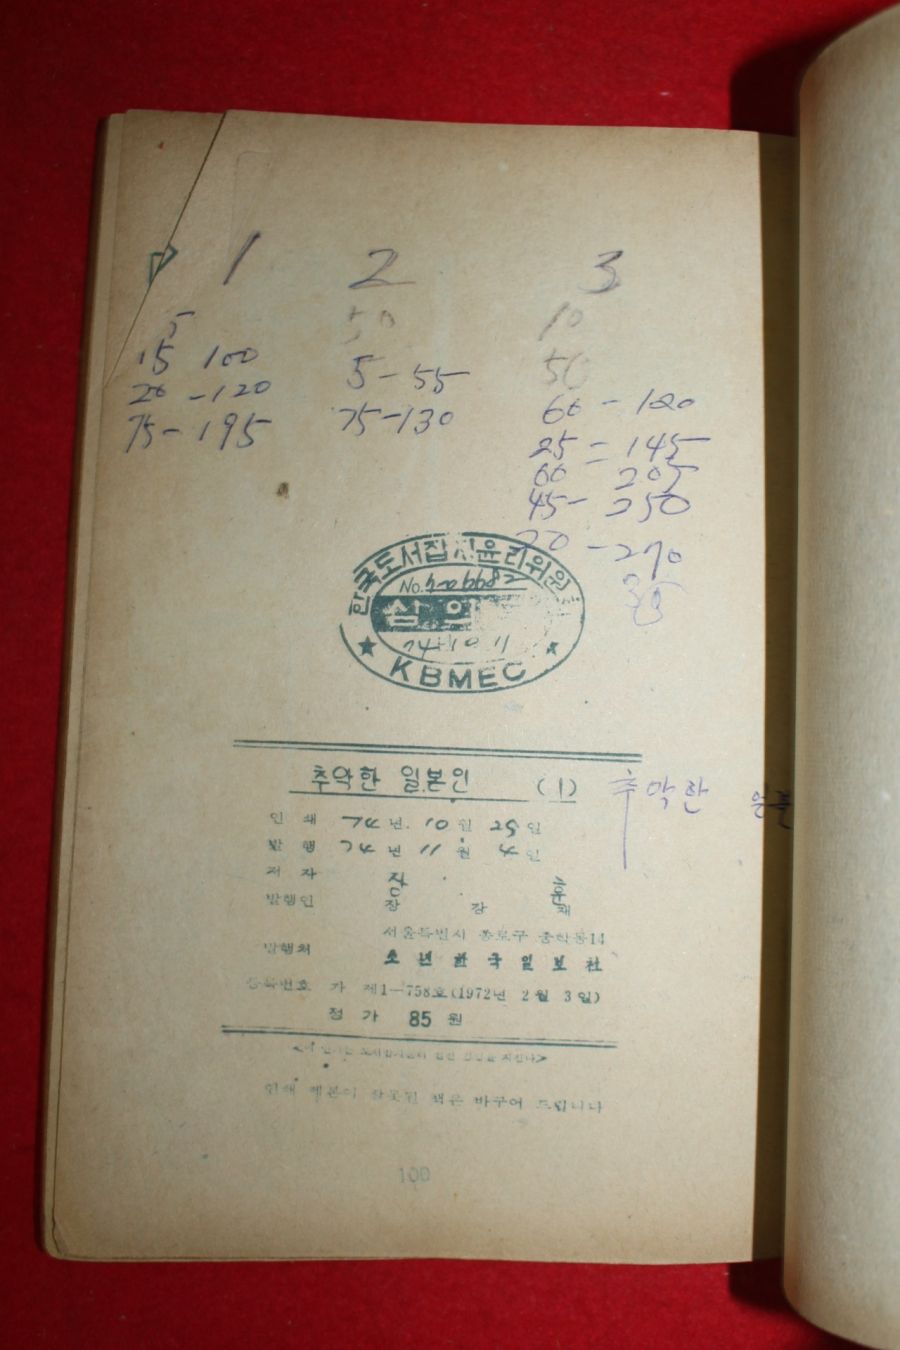 1 2 3
5 50 10
15 100 5-55 50
20-120 75-130 60-120
75-195 25-145
60-205
45-250
20-270
한국도서잡지윤리위원회
No.
심의
74 10 11
KBMEC
추악한 일본인 (1)
추악한
인쇄 74년. 10월 25일
발행 74년 11월 4일
저자 장 훈
발행인 장 강 재
서울특별시 종로구 중학동14
발행처 소년한국일보社
등록번호 가 제1-758호(1972년 2월 3일)
정가 85원
인쇄 제본이 잘못된 책은 바꾸어 드립니다
100